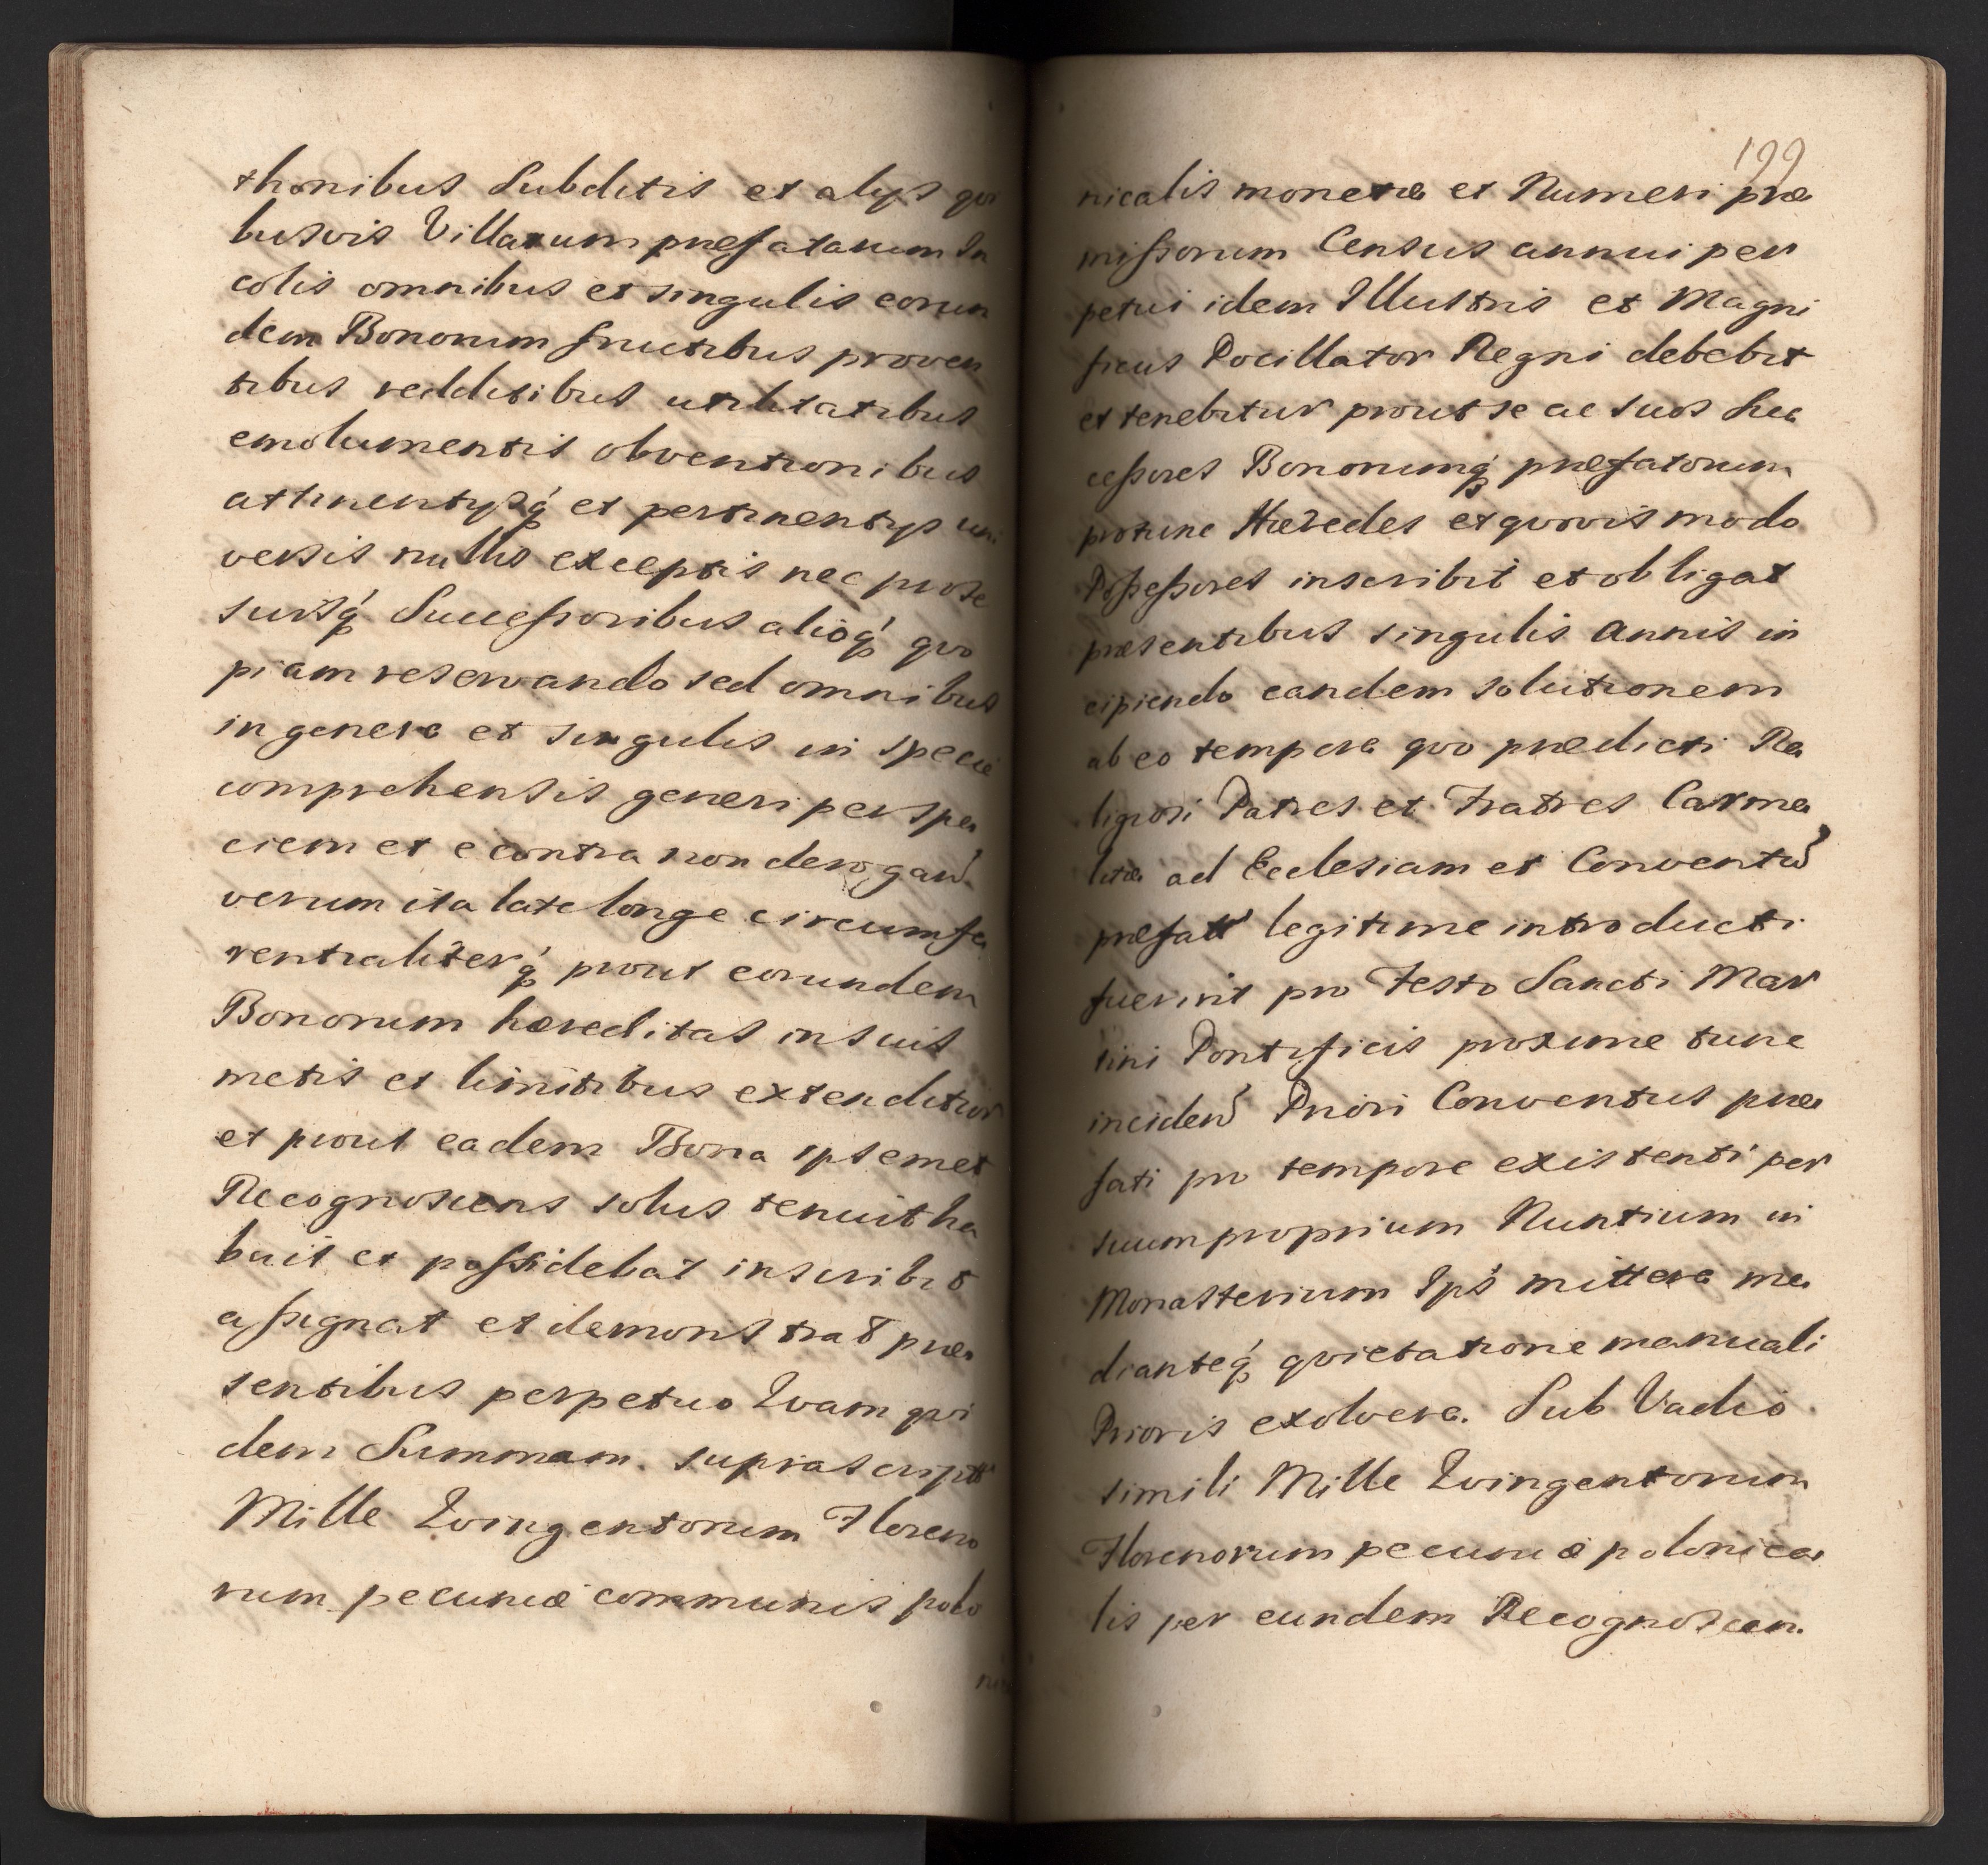 thonibus Subditis et alijs qvi
busvis Villarum præfatarum In
colis omnibus et singulis eorun
dem Bonorum fructibus proven
tibus redditibus utilitatibus
emolumentis obventionibus
attinentijsq́ et pertinentijs uni
versis nullis exceptis nec pro se
suisq́ Successoribus alioq́ qvo
piam reservando sed omnibus
in genere et singulis in specie
comprehensis generi per spe
ciem et e contra non derogan̄
verum ita late longe circumfe
rentialiterq́ prout eorundem
Bonorum hæreditas in suis
metis et limitibus extenditur
et prout eadem Bona ipsemet
Recognoscens solus tenuit ha
buit et possidebat inscribit
assignat et demonstrat præ
sentibus perpetuo Qvam qvi
dem Summam. suprascriptā
Mille Qvingentorum Floreno
rum pecuniæ communis polo
199
nicalis monetæ et Numeri præ
missorum Census annui per
petui idem Illustris et Magni
ficus Pocillator Regni debebit
et tenebitur prout se ac suos Suc
cessores Bonorumq́ præfatorum
protunc Hæredes et qvovis modo
Possessores inscribit et obligat
præsentibus singulis Annis in
cipiendo eandem solutionem
ab eo tempore qvo prædicti Re
ligiosi Patres et Fratres Carme
litæ ad Ecclesiam et Conventū
præfatū legitime introducti
fuerint pro Festo Sancti Mar
tini Pontificis proxime tunc
inciden̄ Priori Conventus præ
fati pro tempore existenti per
suum proprium Nuntium in
Monasterium Ips̄ mittere me
dianteq́ qvietatione manuali
Prioris exolvere. Sub Vadio
simili Mille Qvingentorum
Florenorum pecuniæ polonica
lis per eundem Recognoscen.